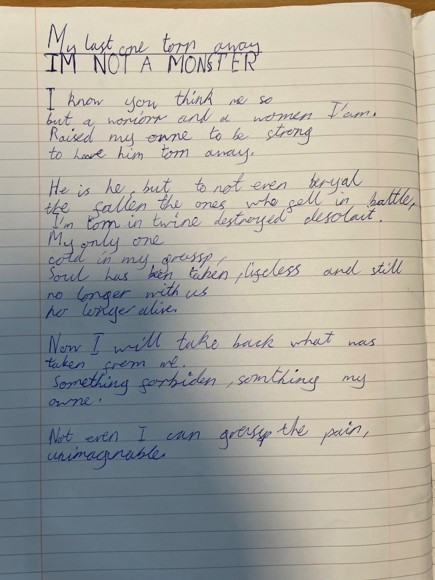 My last one torn away
IM NOT A MONSTER
I know you think me so
but a worior and a women I'am.
Raised my owne to be strong
to have him torn away.
He is he, but to not even beryal
the fallen the ones who fell in battle,
I'm torn in twine destroyed desolait.
My only one
cold in my grassp,
Soul has been taken, lifeless and still
no longer with us
no longer alive.
Now I will take back what was
taken from me.
Something forbiden, somthing my
owne.
Not even I can grassp the pain,
unimaginable.